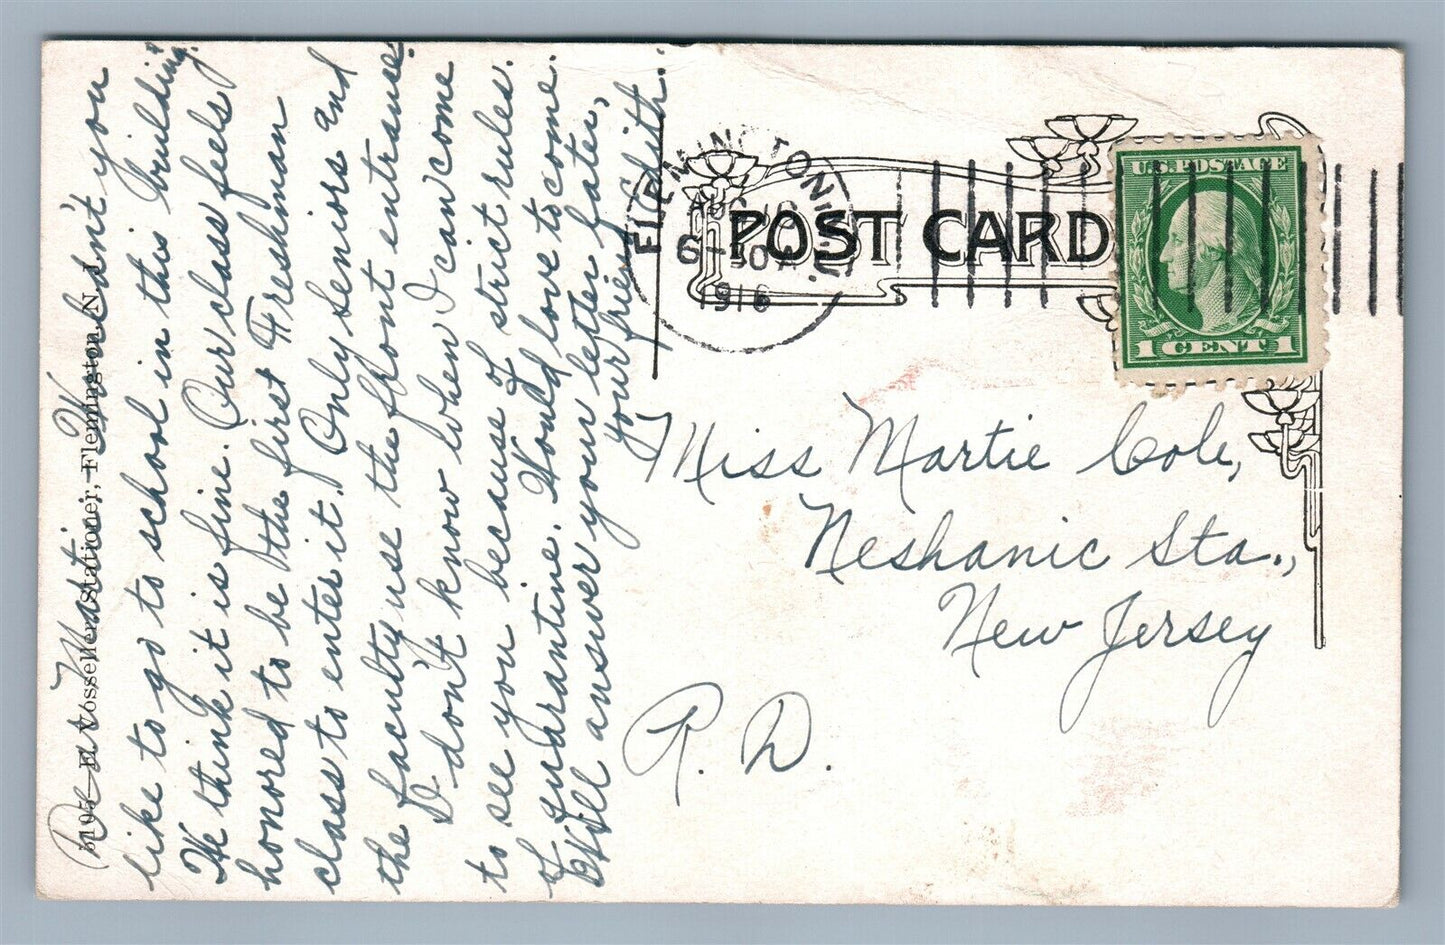 Dear Martie - Wouldn't you
like to go to school in this building?
We think it is fine. Our class feels
honored to be the first Freshman
class to enter it. Only Seniors and
the faculty use the front entranse.
I don't know when I can come
to see you because of strict rules
of quarantine. Would love to come.
Will answer your letter later,
your friend
Edith.
5195-E. Vosseller, Stationer, Flemington, N. J.
FLEMINGTON
AUG
6-30A
1916
POST CARD
U.S. POSTAGE
1 CENT 1
Miss Martie Cole,
Neshanic Sta.,
New Jersey
R. D.